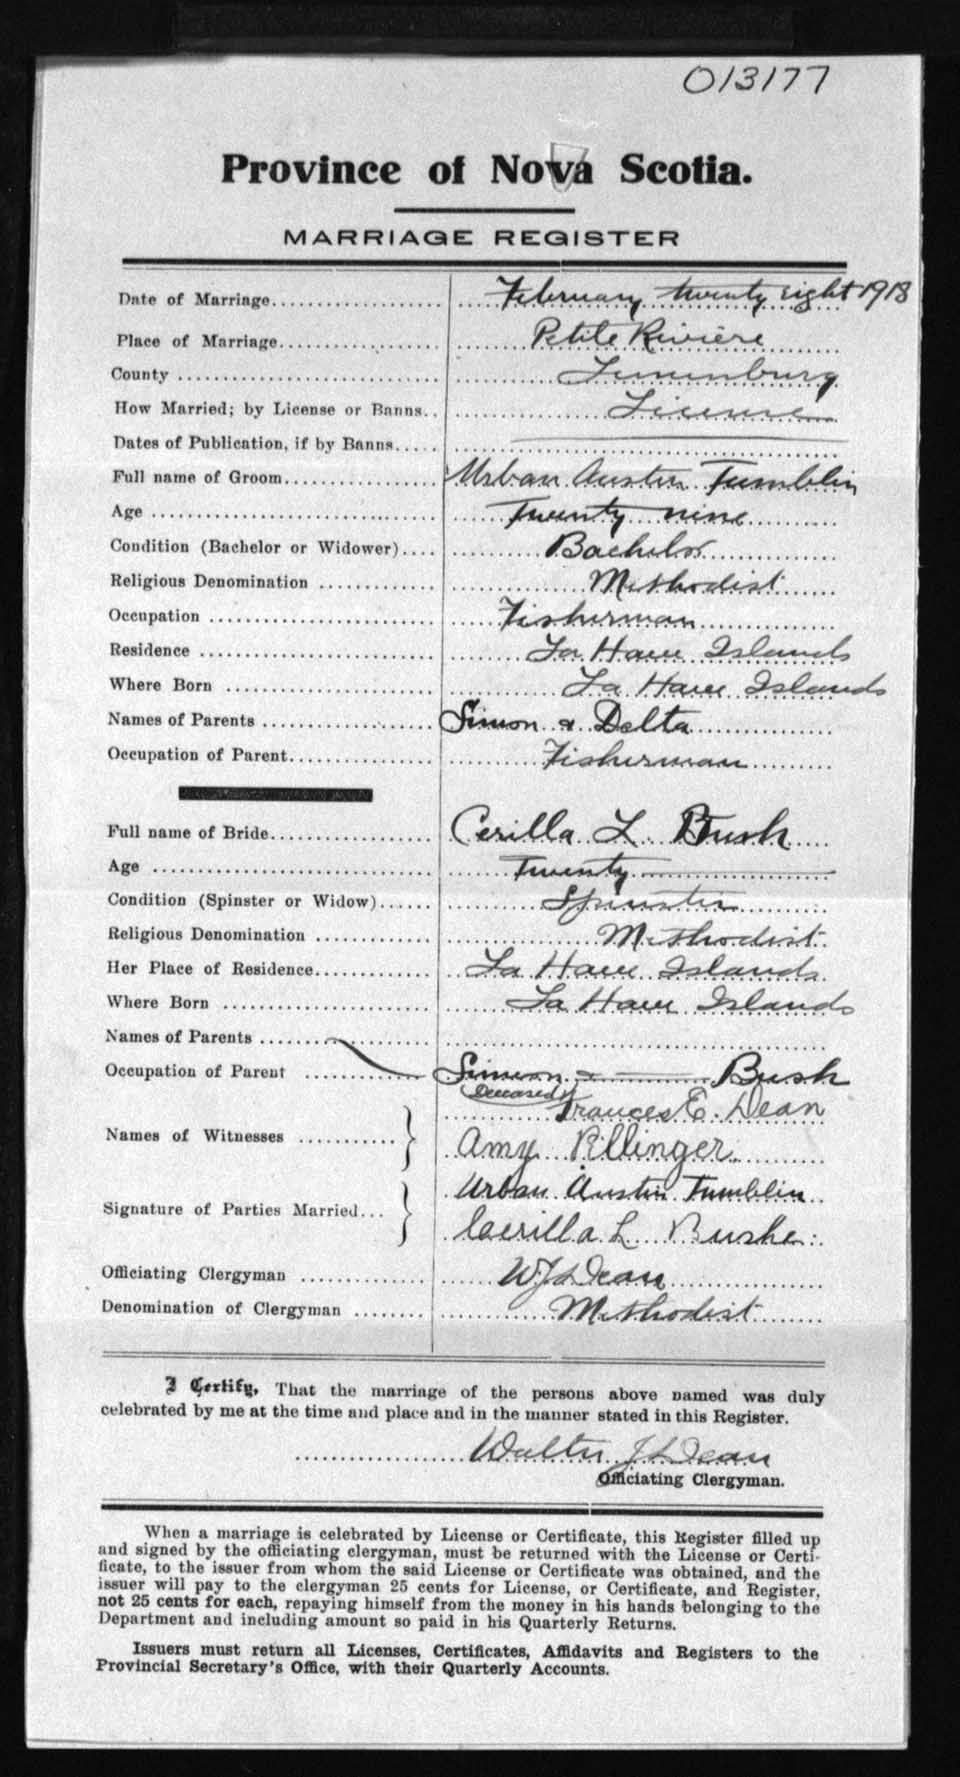 013177
Province of Nova Scotia.
MARRIAGE REGISTER
Date of Marriage.................... February twenty eight 1918
Place of Marriage................... Petite Rivière
County ............................. Lunenburg
How Married; by License or Banns.. License
Dates of Publication, if by Banns.....
Full name of Groom.................. Urban Austin Tumblin
Age ................................ Twenty nine
Condition (Bachelor or Widower).... Bachelor
Religious Denomination ............. Methodist
Occupation ......................... Fisherman
Residence .......................... La Have Islands
Where Born ......................... La Have Islands
Names of Parents ................... Simon & Delta
Occupation of Parent................ Fisherman
Full name of Bride.................. Cerilla L Bush
Age ................................ Twenty
Condition (Spinster or Widow)...... Spinster
Religious Denomination ............. Methodist
Her Place of Residence............. La Have Islands
Where Born ......................... La Have Islands
Names of Parents ...................
Occupation of Parent ............... Simeon & Bush
(Deceased)
Frances E. Dean
Names of Witnesses ...........
Amy Rllinger
Urban Austin Tumblin
Signature of Parties Married...
Cerilla L Bushe
Officiating Clergyman .............. W J Dean
Denomination of Clergyman ........ Methodist
I Certify, That the marriage of the persons above named was duly
celebrated by me at the time and place and in the manner stated in this Register.
Walter J Dean
Officiating Clergyman.
When a marriage is celebrated by License or Certificate, this Register filled up
and signed by the officiating clergyman, must be returned with the License or Certi-
ficate, to the issuer from whom the said License or Certificate was obtained, and the
issuer will pay to the clergyman 25 cents for License, or Certificate, and Register,
not 25 cents for each, repaying himself from the money in his hands belonging to the
Department and including amount so paid in his Quarterly Returns.
Issuers must return all Licenses, Certificates, Affidavits and Registers to the
Provincial Secretary's Office, with their Quarterly Accounts.